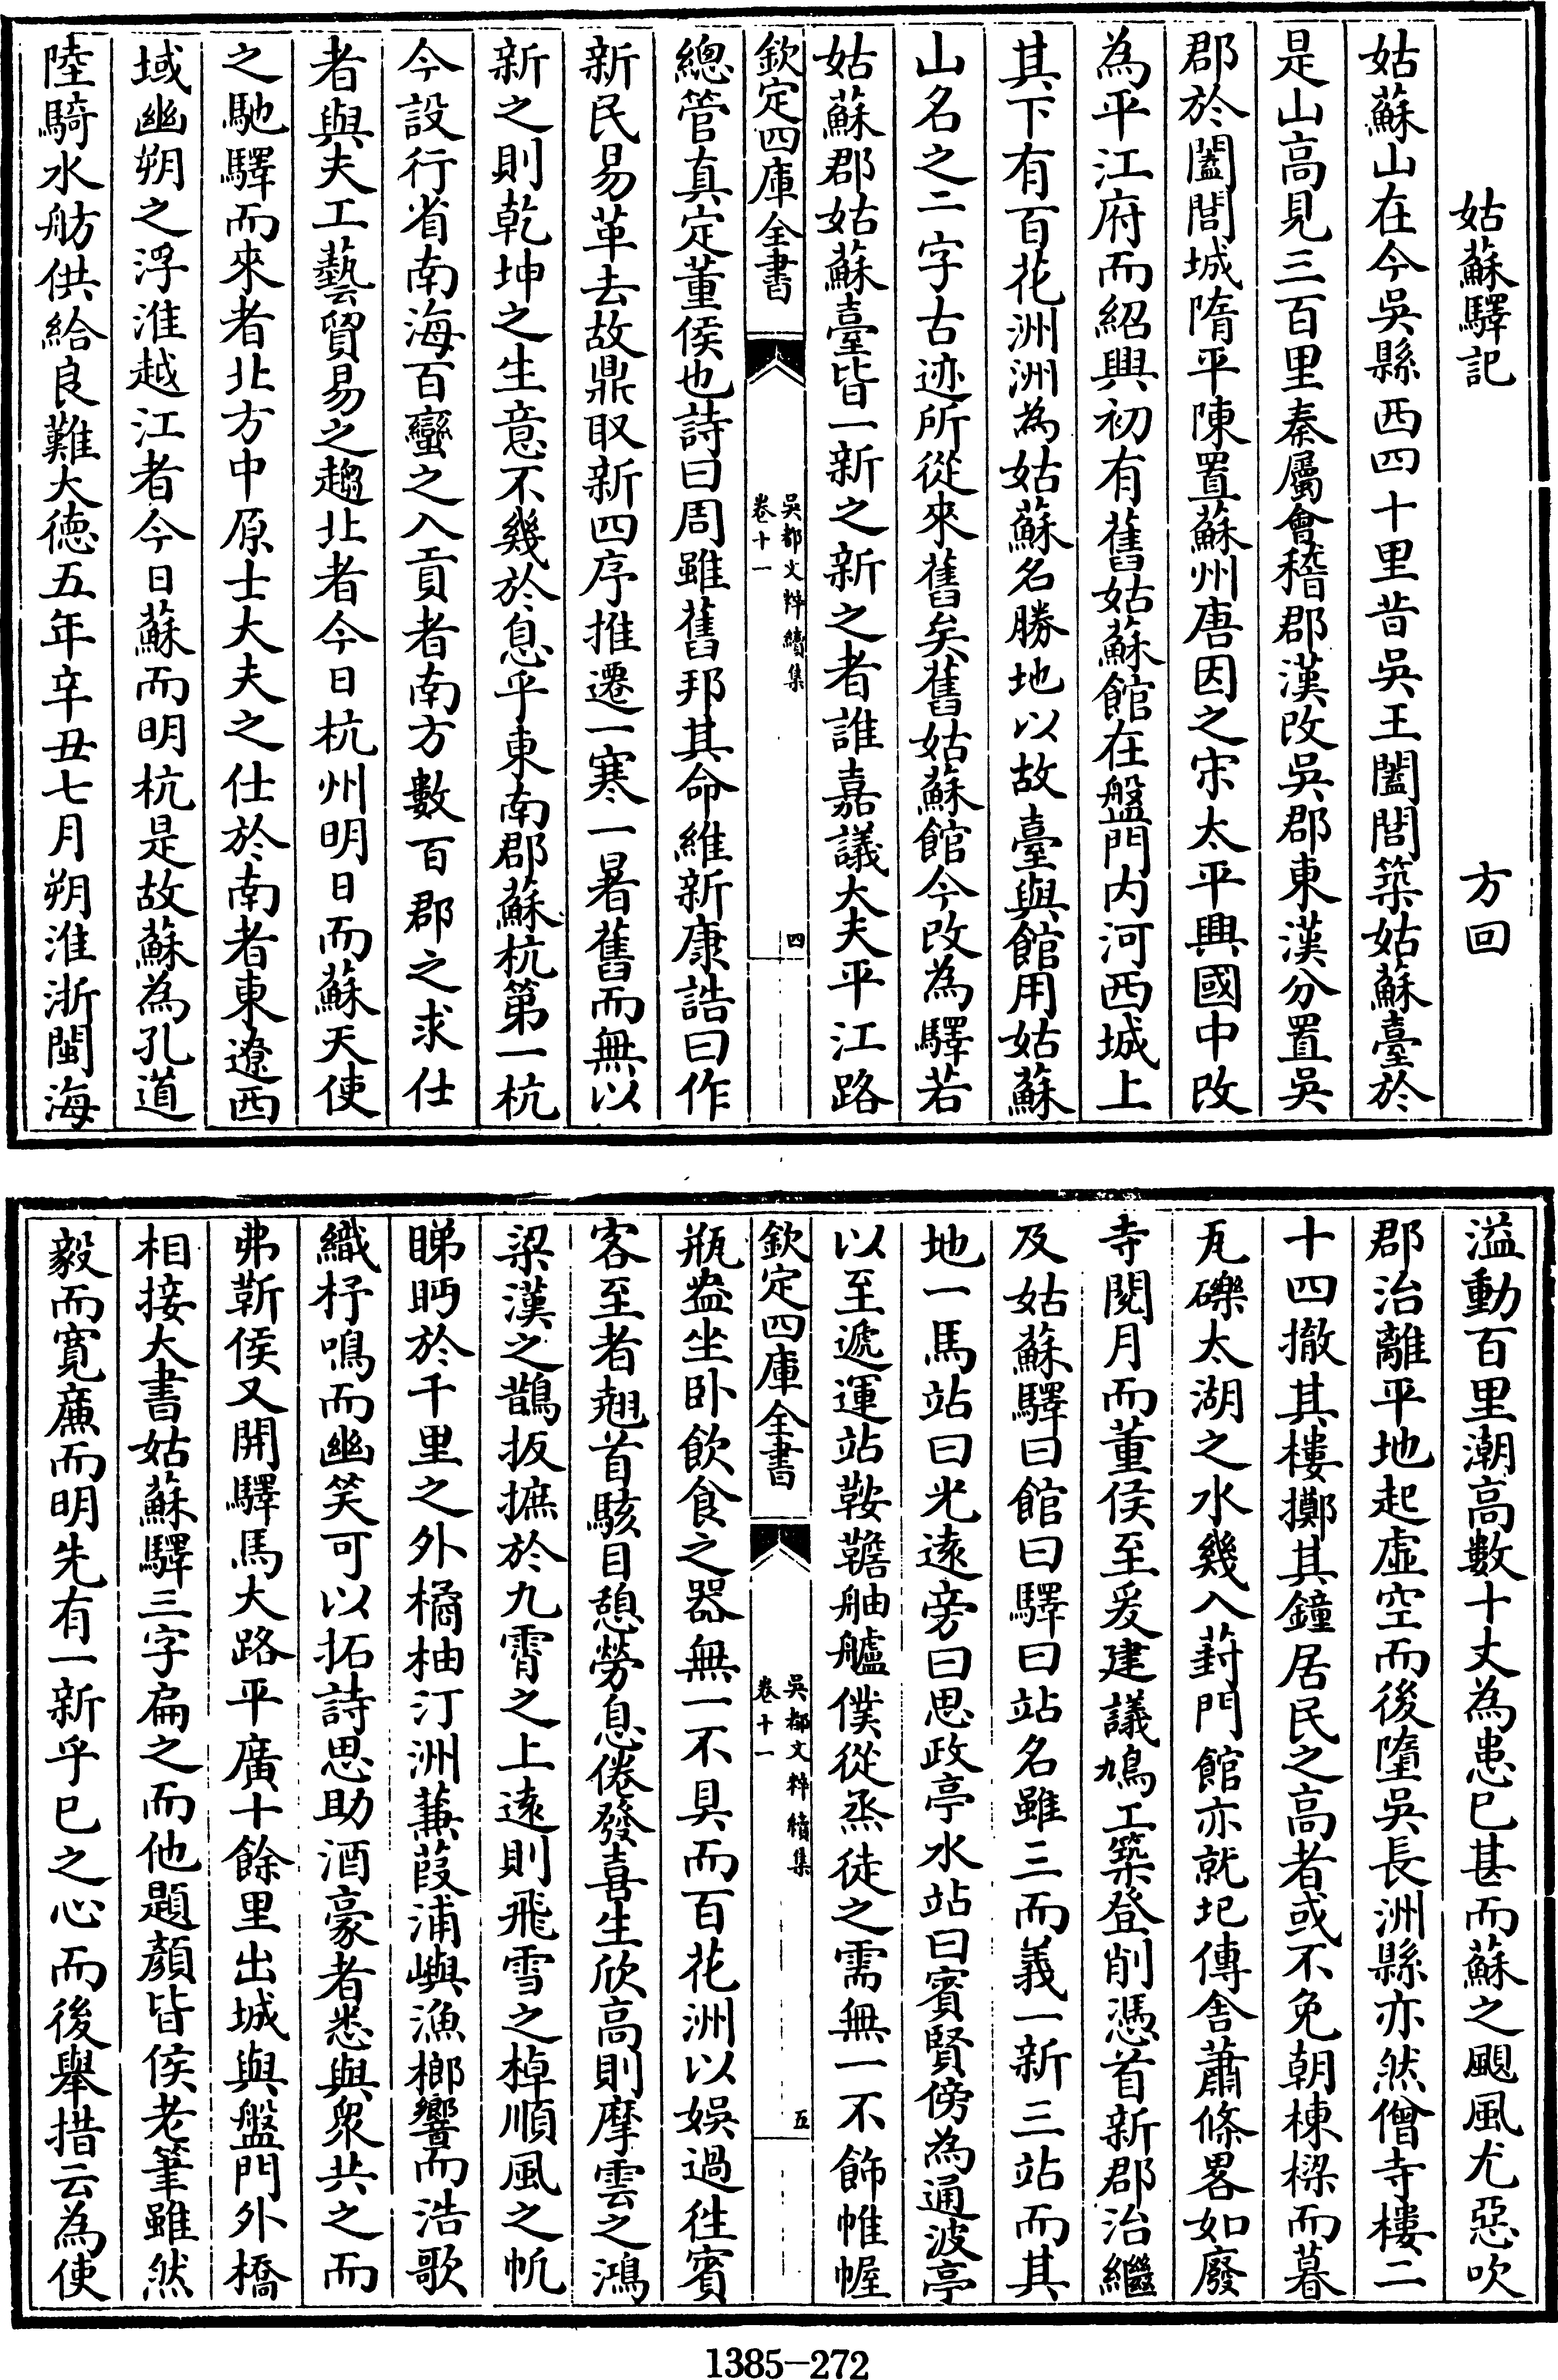 姑蘇驛記　方回
姑蘇山在今吳縣西四十里昔吳王闔閭築姑蘇臺於
是山高見三百里秦屬會稽郡漢改吳郡東漢分置吳
郡於闔閭城隋平陳置蘇州唐因之宋太平興國中改
為平江府而紹興初有舊姑蘇館在盤門内河西城上
其下有百花洲洲為姑蘇名勝地以故臺與館用姑蘇
山名之二字古迹所從來舊矣舊姑蘇館今改為驛若
姑蘇郡姑蘇臺皆一新之新之者誰嘉議大夫平江路
欽定四庫全書
吳都文粹續集
卷十一
四
總管真定董侯也詩曰周雖舊邦其命維新康誥曰作
新民易革去故鼎取新四序推遷一寒一暑舊而無以
新之則乾坤之生意不幾於息乎東南郡蘇杭第一杭
今設行省南海百蠻之入貢者南方數百郡之求仕
者與夫工藝貿易之趨北者今日杭州明日而蘇天使
之馳驛而來者北方中原士大夫之仕於南者東遼西
域幽朔之浮淮越江者今日蘇而明杭是故蘇為孔道
陸騎水舫供給良難大德五年辛丑七月朔淮浙閩海
溢動百里潮高數十丈為患已甚而蘇之颶風尤惡吹
郡治離平地起虛空而後墮吳長洲縣亦然僧寺樓二
十四撤其樓擲其鐘居民之高者或不免朝棟樑而暮
瓦礫太湖之水幾入葑門館亦就圮傳舍蕭條畧如廢
寺閱月而董侯至爰建議鳩工築登削馮首新郡治繼
及姑蘇驛曰館曰驛曰站名雖三而義一新三站而其
地一馬站曰光遠旁曰思政亭水站曰賓賢傍為通波亭
以至遞運站鞍韂舳艫僕從烝徒之需無一不飾帷幄
欽定四庫全書
吳都文粹續集
卷十一
五
瓶盎坐卧飲食之器無一不具而百花洲以娛過徃賓
客至者翹首駭目憩勞息倦發喜生欣高則摩雲之鴻
梁漢之鵲扳摭於九霄之上遠則飛雪之棹順風之帆
睇眄於千里之外橘柚汀洲蒹葭浦嶼漁榔響而浩歌
織杼鳴而幽笑可以拓詩思助酒豪者悉與衆共之而
弗靳侯又開驛馬大路平廣十餘里出城與盤門外橋
相接大書姑蘇驛三字扁之而他題顔皆侯老筆雖然
毅而寛廉而明先有一新乎已之心而後舉措云為使
1385-272